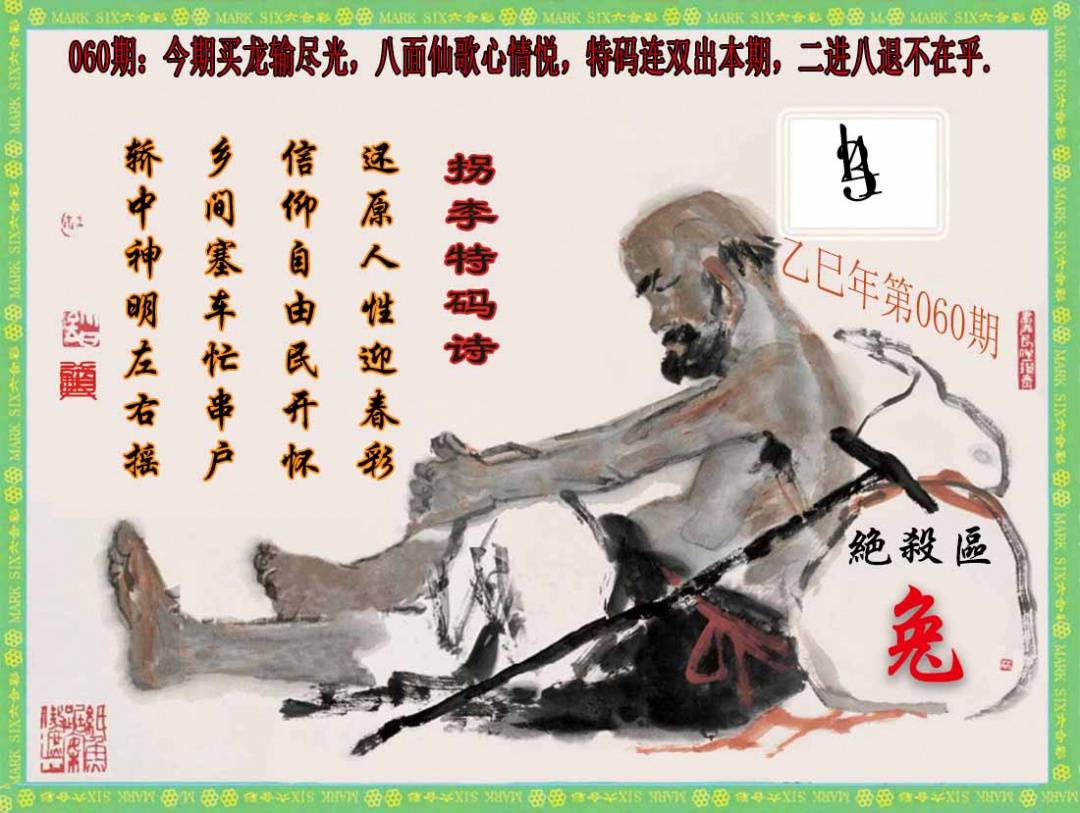 MARK SIX六合彩 MARK SIX六合彩 MARK SIX六合彩 MARK SIX六合彩 MARK SIX六合彩 MARK SIX六合彩
060期：今期买龙输尽光，八面仙歌心情悦，特码连双出本期，二进八退不在乎.
拐李特码诗
还原人性迎春彩
信仰自由民开怀
乡间塞车忙串户
轿中神明左右摇
乙巳年第060期
絶殺區
兔